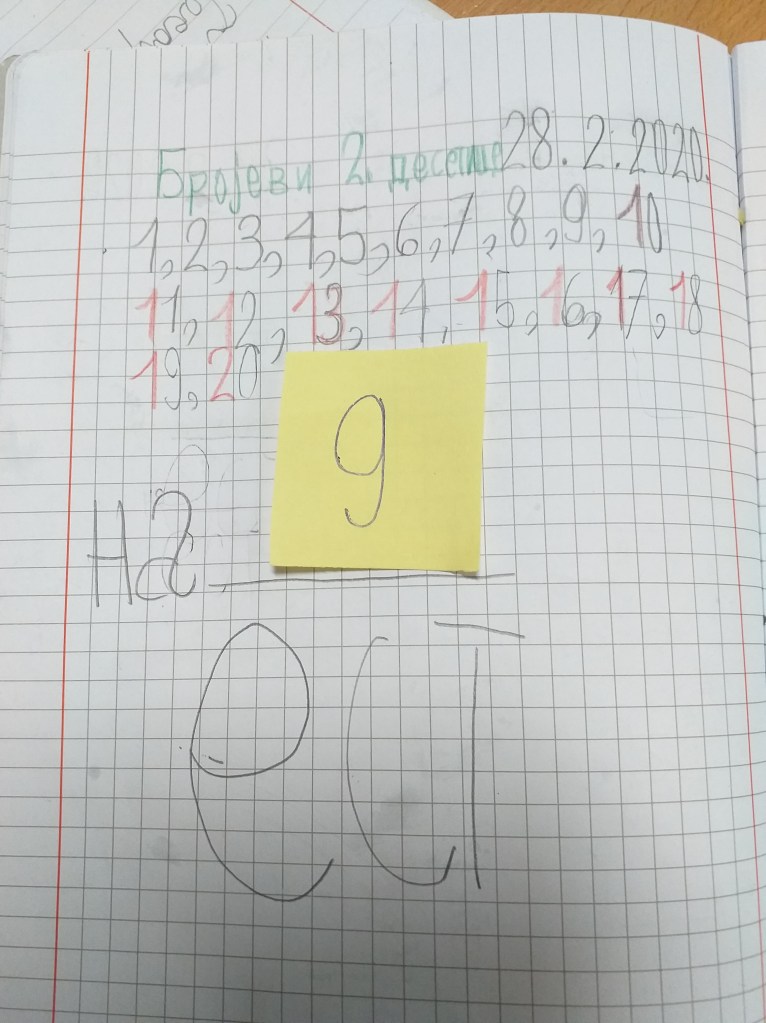 Бројеви 2. десетице 28.2.2020.
1,2,3,4,5,6,7,8,9,10
11,12,13,14,15,16,17,18
19,20
9
На
ест